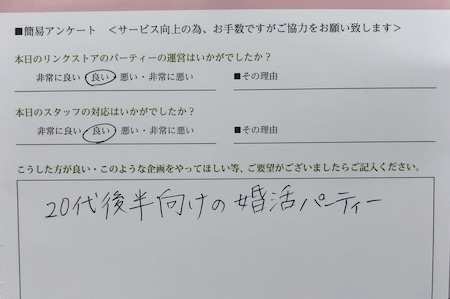 ■簡易アンケート ＜サービス向上の為、お手数ですがご協力をお願い致します＞
本日のリンクストアのパーティーの運営はいかがでしたか？
非常に良い・良い・悪い・非常に悪い ■その理由
本日のスタッフの対応はいかがでしたか？
非常に良い・良い・悪い・非常に悪い ■その理由
こうした方が良い・このような企画をやってほしい等、ご要望がございましたらご記入ください。
20代後半向けの婚活パーティー